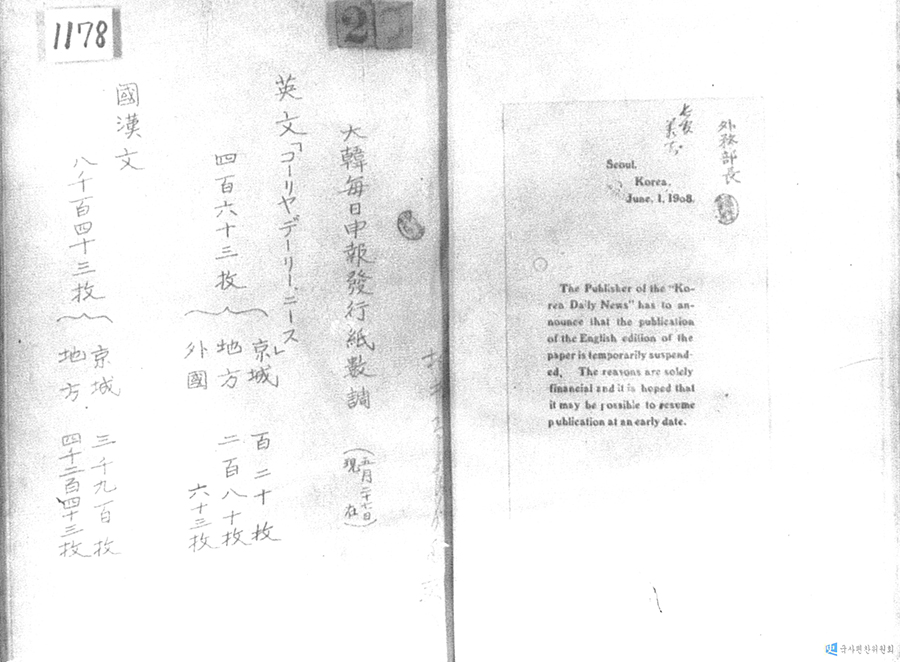 外務部長
Seoul.
Korea.
June, 1, 1908.
The Publisher of the "Ko-
rea Daily News" has to an-
nounce that the publication
of the English edition of the
paper is temporarily suspend-
ed. The reasons are solely
financial and it is hoped that
it may be possible to resume
publication at an early date.
1178
2
大韓每日申報發行紙數調
(五月二十七日
現在)
英文「コーリヤデーリー、ニース」
四百六十三枚
京城 百二十枚
地方 二百八十枚
外國 六十三枚
國漢文
八千百四十三枚
京城 三千九百枚
地方 四千二百四十三枚
국사편찬위원회